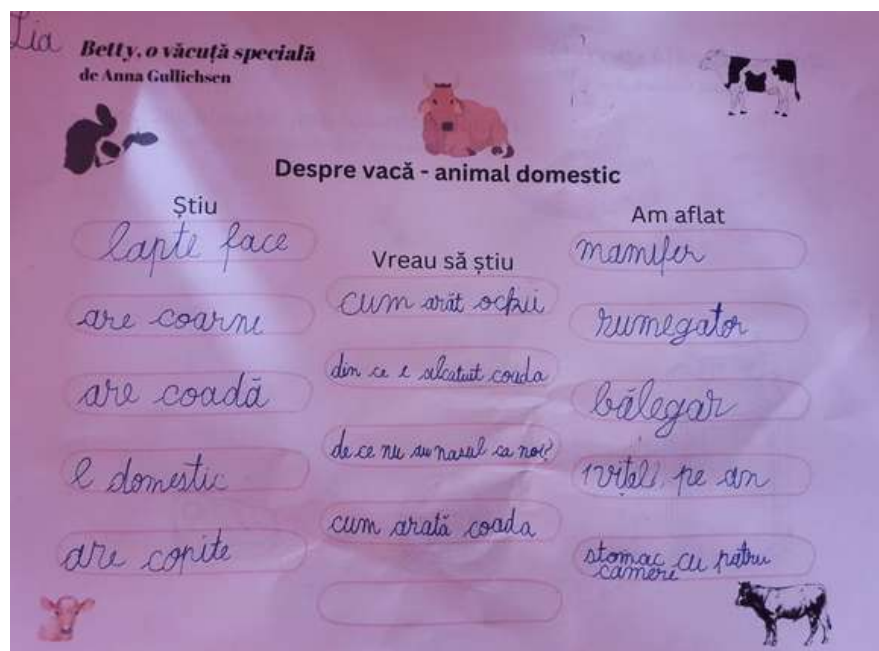 Lia
Betty, o văcuță specială
de Anna Gullichsen
Despre vacă - animal domestic
Știu
lapte face
are coarne
are coadă
e domestic
are copite
Vreau să știu
cum arăt ochii
din ce e alcatuit coada
de ce nu au nasul ca noi?
cum arată coada
Am aflat
mamifer
rumegator
bălegar
1 vițel pe an
stomac cu patru
camere